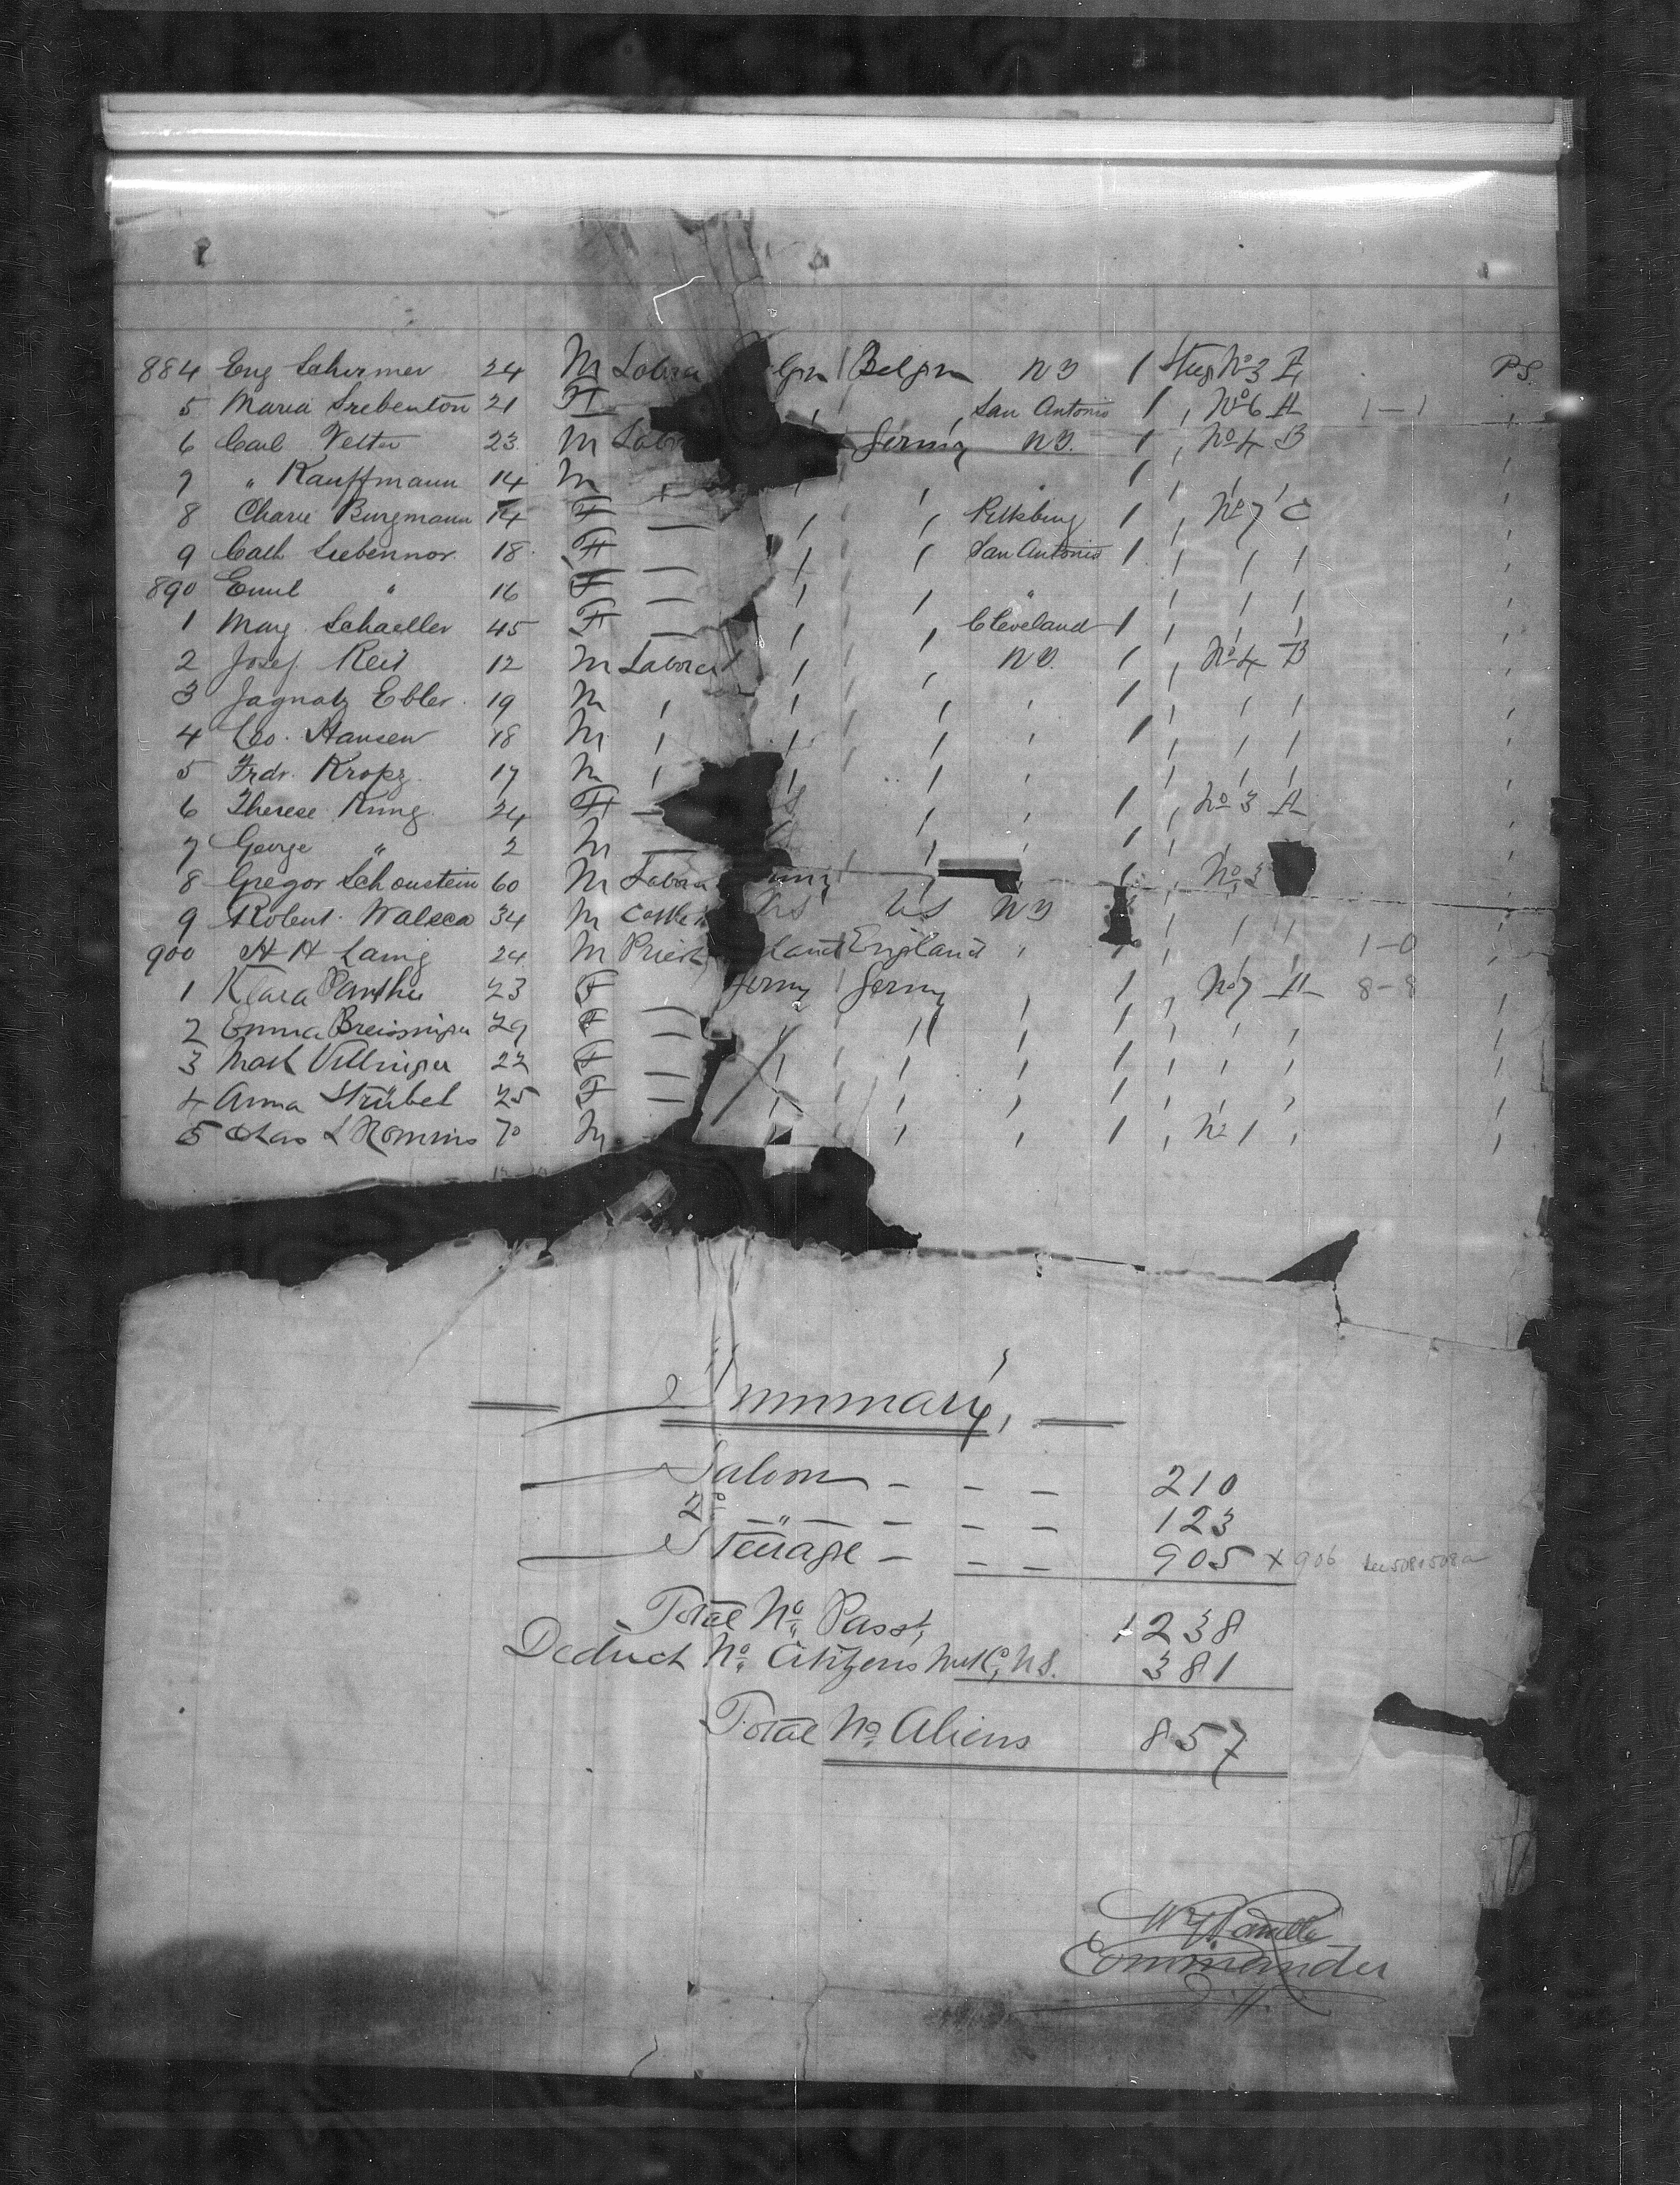 884 Eug Schirmer 24 M Labor lgm Belgm N Y 1 Steg No 3 E P.S.
5 Maria Srebenton 21 F San Antonio 1 " No 6 A 1-1 "
6 Carl Vetter 23 M Labor Germny N Y. 1 " No 4 B
7 " Kauffmann 14 M " 1 " " " "
8 Charie Burgmann 14 F — " " Pittsburg 1 " No 7 C "
9 Cath Siebennor. 18 F — " " San Antonio 1 " " " "
890 Emil " 16 F — " " " " " " "
1 Marg Schaeller 45 F — " " Cleveland 1 " " " "
2 Josef Reis 12 M Laborer " " N Y. 1 " No 4 B "
3 Jagnatz Ebler. 19 M " " " " 1 " " " "
4 Leo. Hansen 18 M " " " " 1 " " " "
5 Frdr. Kropz. 17 M " " " " " " "
6 Therese Kung 24 F — S " " 1 " No 3 A "
7 George " 2 M — " " 1 " " "
8 Gregor Schonstein 60 M Labor " 1 " No 3 "
9 Robert. Walsca 34 M US US N Y " " " "
900 H H Laing 24 M Priest land England " " " " " 1-0 "
1 Klara Panther 23 F Germy Germy 1 " No 7 A 8-8 "
2 Emma Breissinger 29 F — " " 1 " " " "
3 Villinger 22 F — " " " 1 " " " "
4 Anna Strübel 25 F — " " " 1 " " " "
5 Chas L Rommis 70 M " " " 1 " No 1 " "
Summary,
Saloon - - - 210
2° — " — - - - 123
Steerage - - - 905 x 906 See 508 & 508a
Total No. Passs. 1238
Deduct No. Citizens U.S. 381
Total No. Aliens 857
Commander